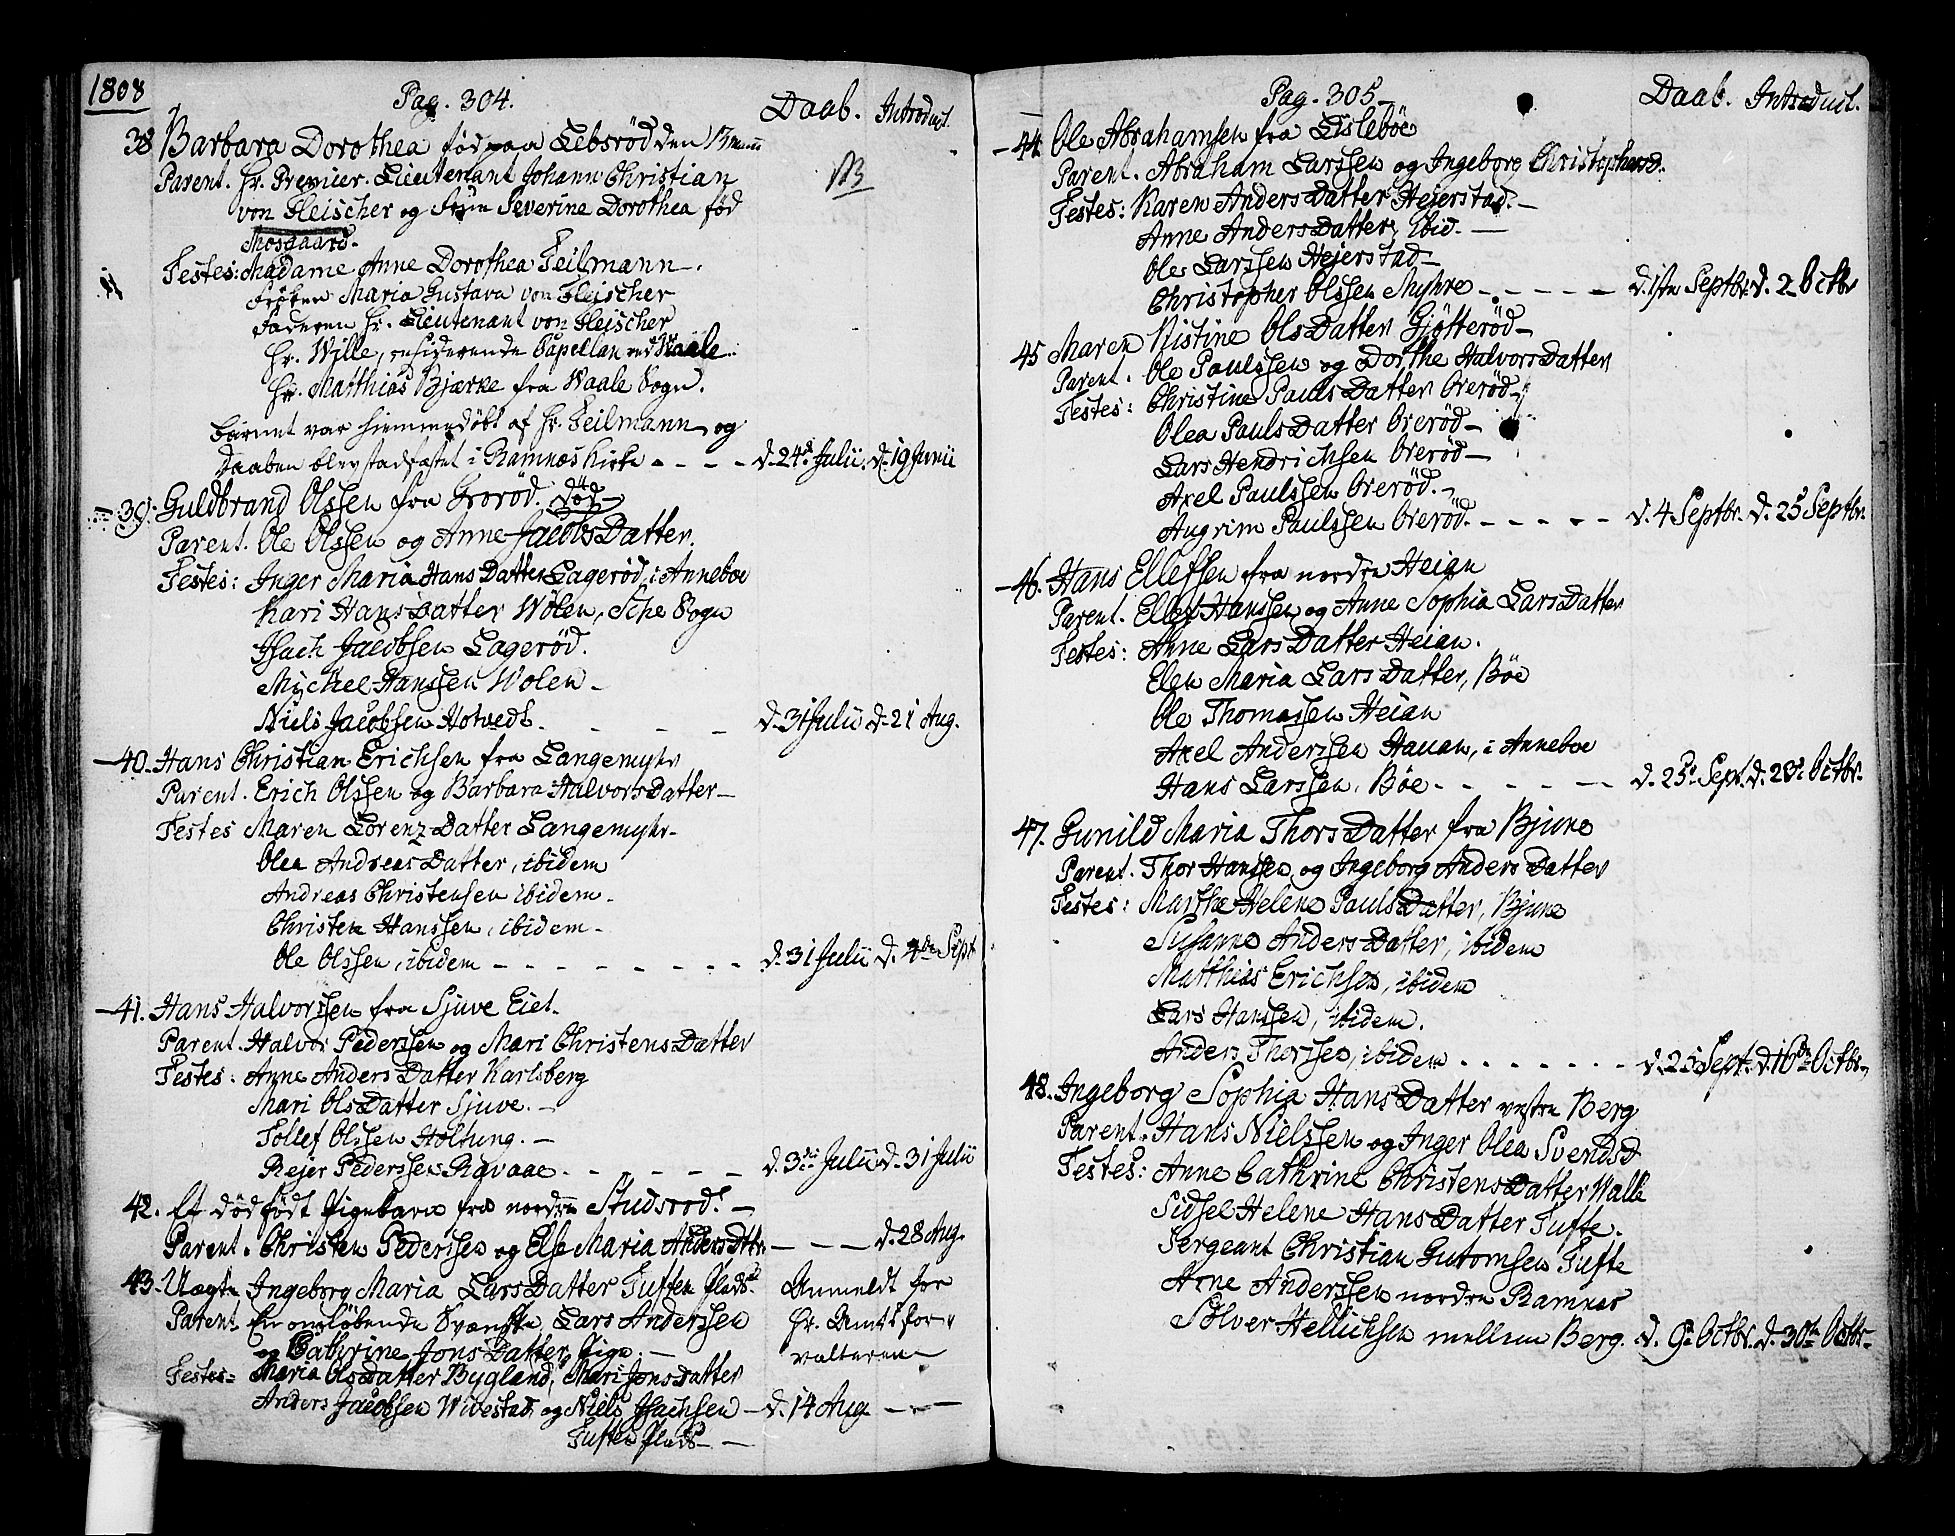 1808
Pag. 304.
Daab. Introduct.
38 Barbara Dorothea fød paa Lebsröd den 17
Parent. Hr. Premier-Lieutenant Johann Christian
von Fleischer og Frue Severine Dorothea fød
Mosgaard.
NB
Testes: Madame Anne Dorothea Teilmann.
Frøken Maria Gustava von Fleischer
Faderen Hr. Lieutenant von Fleischer
Hr. Wille, residerende Capellan ved Waale.
Hr. Matthias Bjærke fra Waale Sogn.
Barnet var hiemmedöbt af Hr. Teilmann og
Daaben blev stadfæstet i Ramnæs Kirke - - - - d. 24d Julii. d. 19 Junii
39. Guldbrand Olssen fra Groröd. död
Parent. Ole Olssen og Anne Jacobs Datter.
Testes: Inger Maria Hans Datter Lageröd, i Anneboe
Kari Hans Datter Wölen, Sche Sogn
Isach Jacobsen Lageröd.
Mychel Hanssen Wolen -
Niels Jacobsen Hotvedt. - - - - d. 31 Julii d. 21 Aug.
40. Hans Christian Erichsen fra Langemyhr
Parent. Erich Olssen og Barbara Halvors Datter -
Testes Maren Lorenz Datter Langemyhr-
Olea Andreas Datter, ibidem
Andreas Christensen ibidem.
Christen Hanssen, ibidem-
Ole Olssen, ibidem - - - - - - - - d. 31 Julii d. 4de Sept
41. Hans Halvorssen fra Sjuve Eiet.
Parent. Halvor Pederssen og Mari Christens Datter
Testes: Anne Anders Datter Karlsberg
Mari Ols Datter Sjuve. -
Tollef Olssen Holtung. -
Rejer Pederssen Ravaae. - - - - - d. 3die Julii d. 31 Julii
42. Et dödfödt Pigebarn fra nordre Studsröd. -
Parent. Christen Pederssen og Else Maria Anders Dttr. - - - d. 28 Aug.
43. Uægte Ingeborg Maria Lars Datter Tuften Plads.
Parent. En omløbende Svenske, Lars Anderssen
og Cathrine Jons Datter, Pige. -
Anmeldt for
Hr. Amtsfor-
valteren
Testes- Maria Ols Datter Bygland, Mari Jons datter
Anders Jacobsen Wivestad, og Niels Isachsen - d. 14 Aug - - -
Tuften Plads -
Pag. 305.
Daab. Introduct.
44. Ole Abrahamsen fra Lislebøe
Parent. Abraham Larssen og Ingeborg Christophersd.
Testes: Karen Anders Datter Hejerstad. -
Anne Anders Datter, ibid. -
Ole Larssen Hejerstad -
Christopher Olssen Myhre - - - - - d. 1ste Septbr. d. 2 Octbr
45 Maren Kistine Ols Datter Gjötteröd -
Parent. Ole Paulssen og Dorthe Halvors Datter
Testes: Christine Pauls Datter Oreröd -
Olea Pauls Datter Oreröd -
Lars Hendrichsen Oreröd -
Axel Paulssen Oreröd. -
Augrim Paulssen Oreröd. - - - - - d. 4 Septbr. d. 25 Septbr.
46. Hans Ellefsen fra nordre Heian
Parent. Ellef Hanssen og Anne Sophia Lars Datter
Testes: Anne Lars Datter Heian.
Elen Maria Lars Datter, Böe
Ole Thomassen Heian
Axel Anderssen Hauan, i Anneboe
Hans Larssen, Bøe - - - - - - d. 25 Sept. d. 23 Octbr.
47. Gunild Maria Thors Datter fra Bjune
Parent. Thor Hanssen og Ingeborg Anders Datter
Testes: Marthe Helene Pauls Datter, Bjune
Susanne Anders Datter, ibidem
Matthias Erichsen, ibidem
Lars Hanssen, ibidem.
Anders Thorssen, ibidem - - - - - - d. 25 Sept. d. 16de Octbr.
48. Ingeborg Sophia Hans Datter vestre Berg
Parent. Hans Nielssen og Inger Olea Svendsd
Testes: Anne Cathrine Christens Datter Walle
Sidsel Helene Hans Datter Tufte.
Sergeant Christian Gutormsen Tufte
Arne Anderssen nordre Ramnæs
Sölver Hellichsen mellem Berg. d. 9de Octbr. d. 30te Octbr-